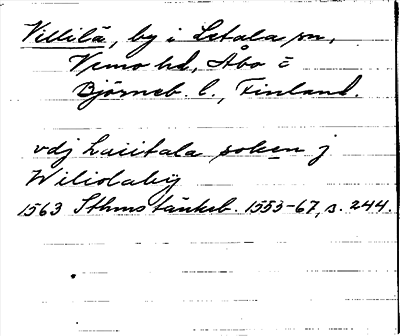 Villilä, by i Letala sn,
Vemo hd, Åbo o
Björneb. l., Finland.
vdj Laiitala soken j
Wiliolaby
1563 Sthms tänkeb. 1553-67, s. 244.